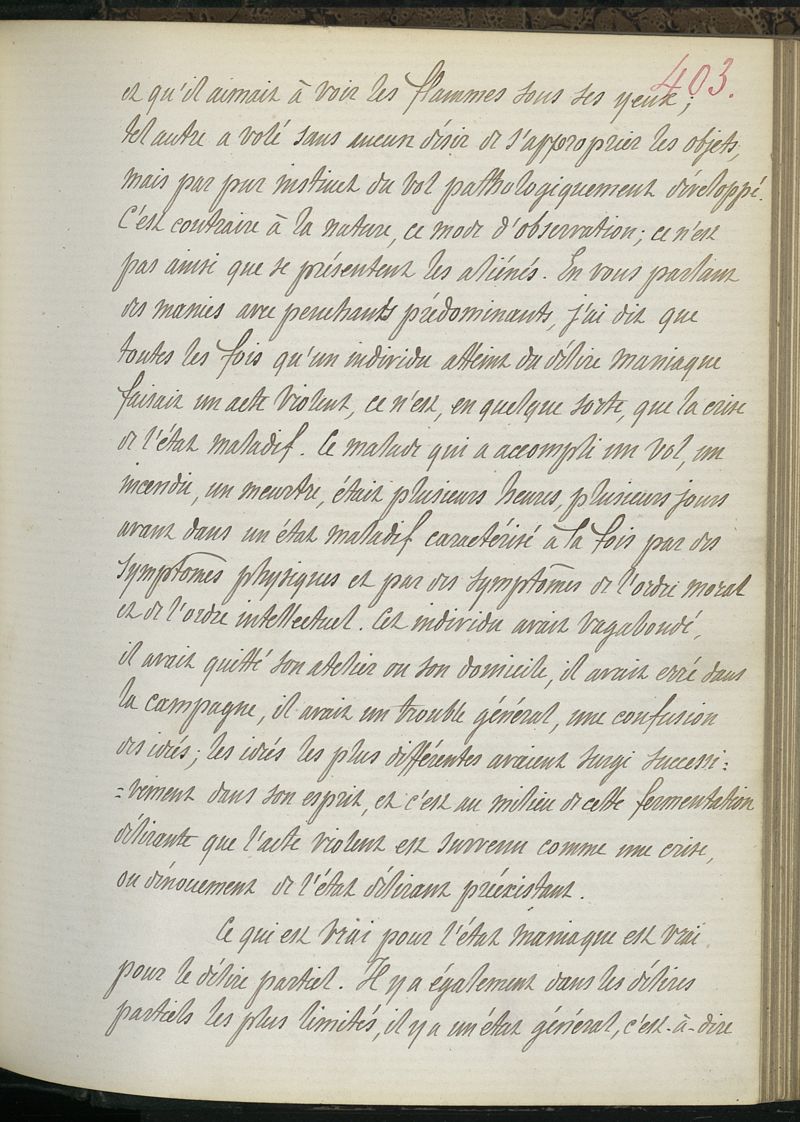 403.
et qu'il aimait à voir les flammes sous ses yeux;
tel autre a volé sans aucun désir de s'approprier les objets,
mais par pur instinct du vol pathologiquement développé.
C'est contraire à la nature, ce mode d'observation; ce n'est
pas ainsi que se présentent les aliénés. En vous parlant
des manies avec penchants prédominants, j'ai dit que
toutes les fois qu'un individu atteint du délire maniaque
faisait un acte violent, ce n'est, en quelque sorte, que la crise
de l'état maladif. Ce malade qui a accompli un vol, un
incendie, un meurtre, était plusieurs heures, plusieurs jours
avant dans un état maladif caractérisé à la fois par des
symptômes physiques et par des symptômes de l'ordre moral
et de l'ordre intellectuel. Cet individu avait vagabondé,
il avait quitté son atelier ou son domicile, il avait erré dans
la campagne, il avait un trouble général, une confusion
des idées; les idées les plus différentes avaient surgi successi=
=vement dans son esprit, et c'est au milieu de cette fermentation
délirante que l'acte violent est survenu comme une crise,
ou dénouement de l'état délirant préexistant.
Ce qui est vrai pour l'état maniaque est vrai
pour le délire partiel. Il y a également dans les délires
partiels les plus limités, il y a un état général, c'est-à-dire